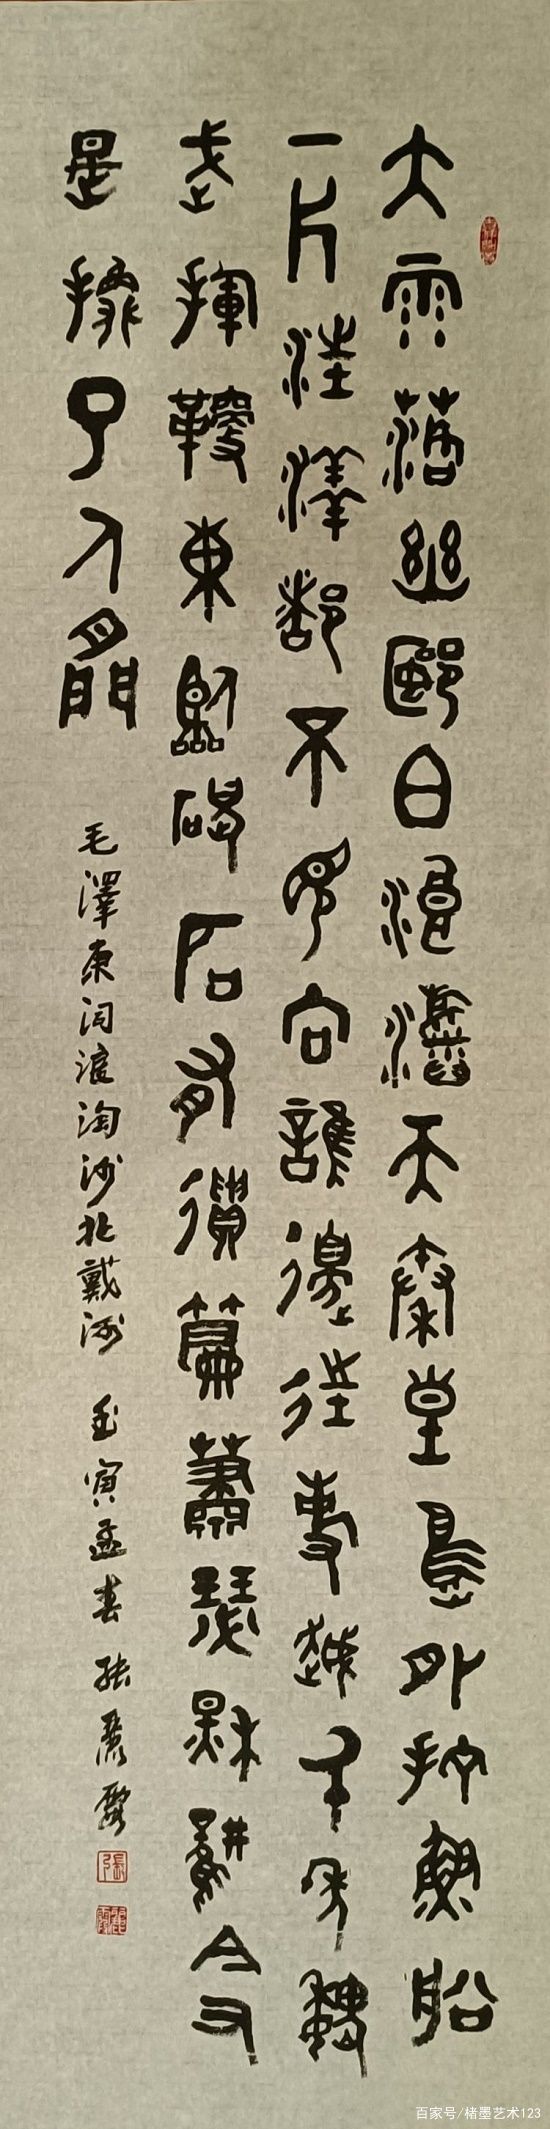 大雨落幽燕白浪滔天秦皇島外打魚船
一片汪洋都不見向誰邊往事越千年魏
武揮鞭東臨碣石有遺篇蕭瑟秋風今又
是換了人間
毛澤東詞浪淘沙北戴河 壬寅孟春張麗
百家号/楮墨艺术123